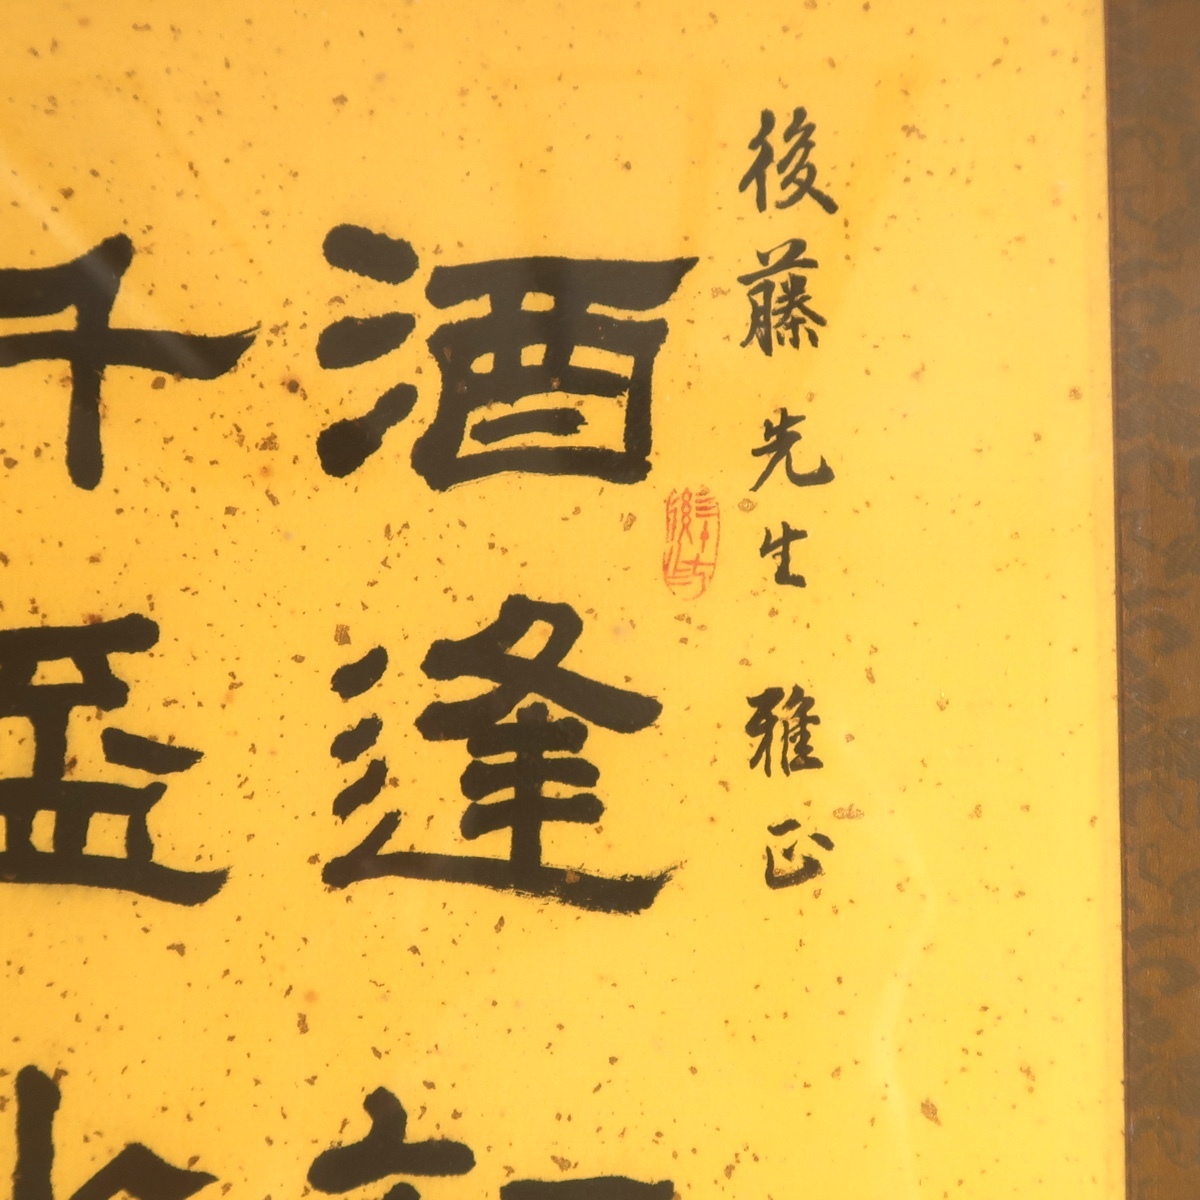 後藤先生 雅正
酒逢
千盃